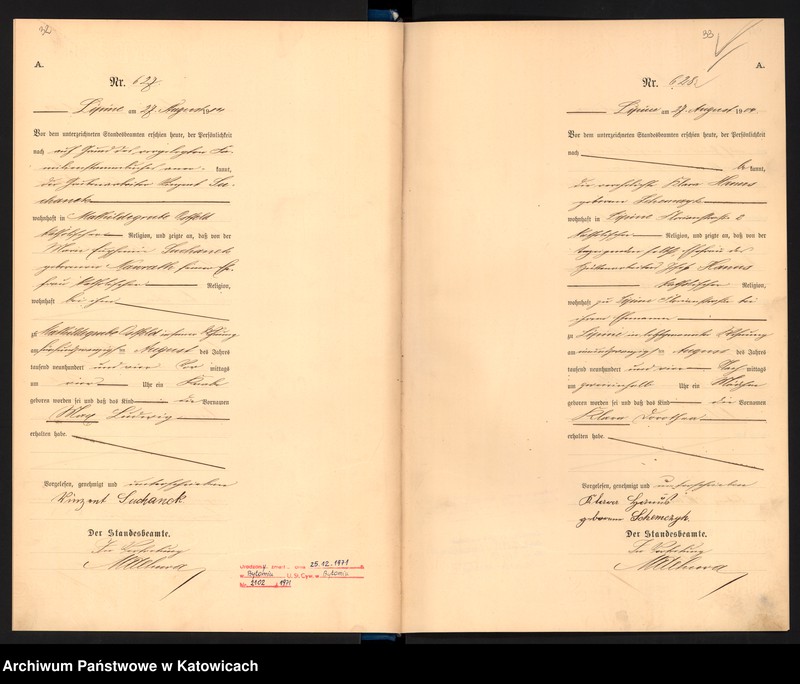 32
A.
Nr. 627.
Lipine am 27. August 1904
Vor dem unterzeichneten Standesbeamten erschien heute, der Persönlichkeit
nach auf Grund des vorgelegten Fa-
milienstammbuches aner- kannt,
der Grubenarbeiter Vinzent Su-
chanek
wohnhaft in Mathildegrube Ostfeld
katholischer Religion, und zeigte an, daß von der
Marie Suchanek
geborenen seiner Ehe-
frau katholischer Religion,
wohnhaft bei ihm
zu Mathildegrube Ostfeld in seiner Wohnung
am August des Jahres
tausend neunhundert und vier Vor mittags
um vier Uhr ein Knabe
geboren worden sei und daß das Kind die Vornamen
Max Ludwig
erhalten habe.
Vorgelesen, genehmigt und unterschrieben
Vinzent Suchanek
Der Standesbeamte.
In Vertretung
25.12.1971
w Bytomiu U. St. Cyw. w Bytomiu
Nr. 2102 1971
33
A.
Nr. 628.
Lipine am 27. August 1904.
Vor dem unterzeichneten Standesbeamten erschien heute, der Persönlichkeit
nach be kannt,
die verehelichte Klara Hanus
geborene Schemczyk
wohnhaft in Lipine 2
katholischer Religion, und zeigte an, daß von der
Hüttenarbeiter Josef Hanus
katholischer Religion,
wohnhaft zu Lipine bei
ihrem Ehemann
zu Lipine in Wohnung
am August des Jahres
tausend neunhundert und vier Nach mittags
um Uhr ein Mädchen
geboren worden sei und daß das Kind die Vornamen
Klara Dorothea
erhalten habe.
Vorgelesen, genehmigt und unterschrieben
Klara Hanus
geborene Schemczyk.
Der Standesbeamte.
In Vertretung
Archiwum Państwowe w Katowicach